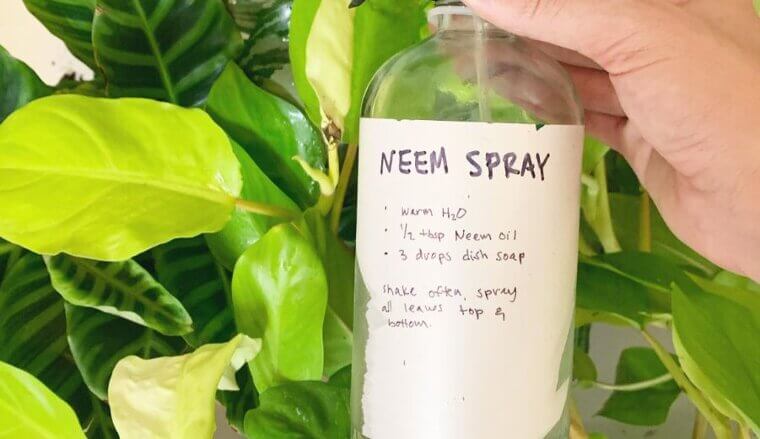 NEEM SPRAY
• warm H₂O
• ½ tbsp Neem oil
• 3 drops dish soap
shake often, spray
all leaves top &
bottom.